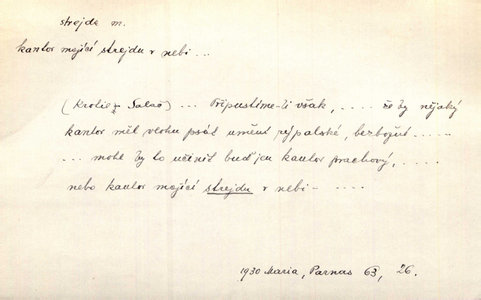 strejda m.
kantor mající strejdu v nebi ...
( ... ) ... Připustíme-li však, .... že by nějaký
kantor měl vlohu psát umění rýpalské, bezbožné .....
... mohl by to učinit buď jen kantor prachový, ....
nebo kantor mající strejdu v nebi - ....
1930 Maria, Parnas 63, 26.